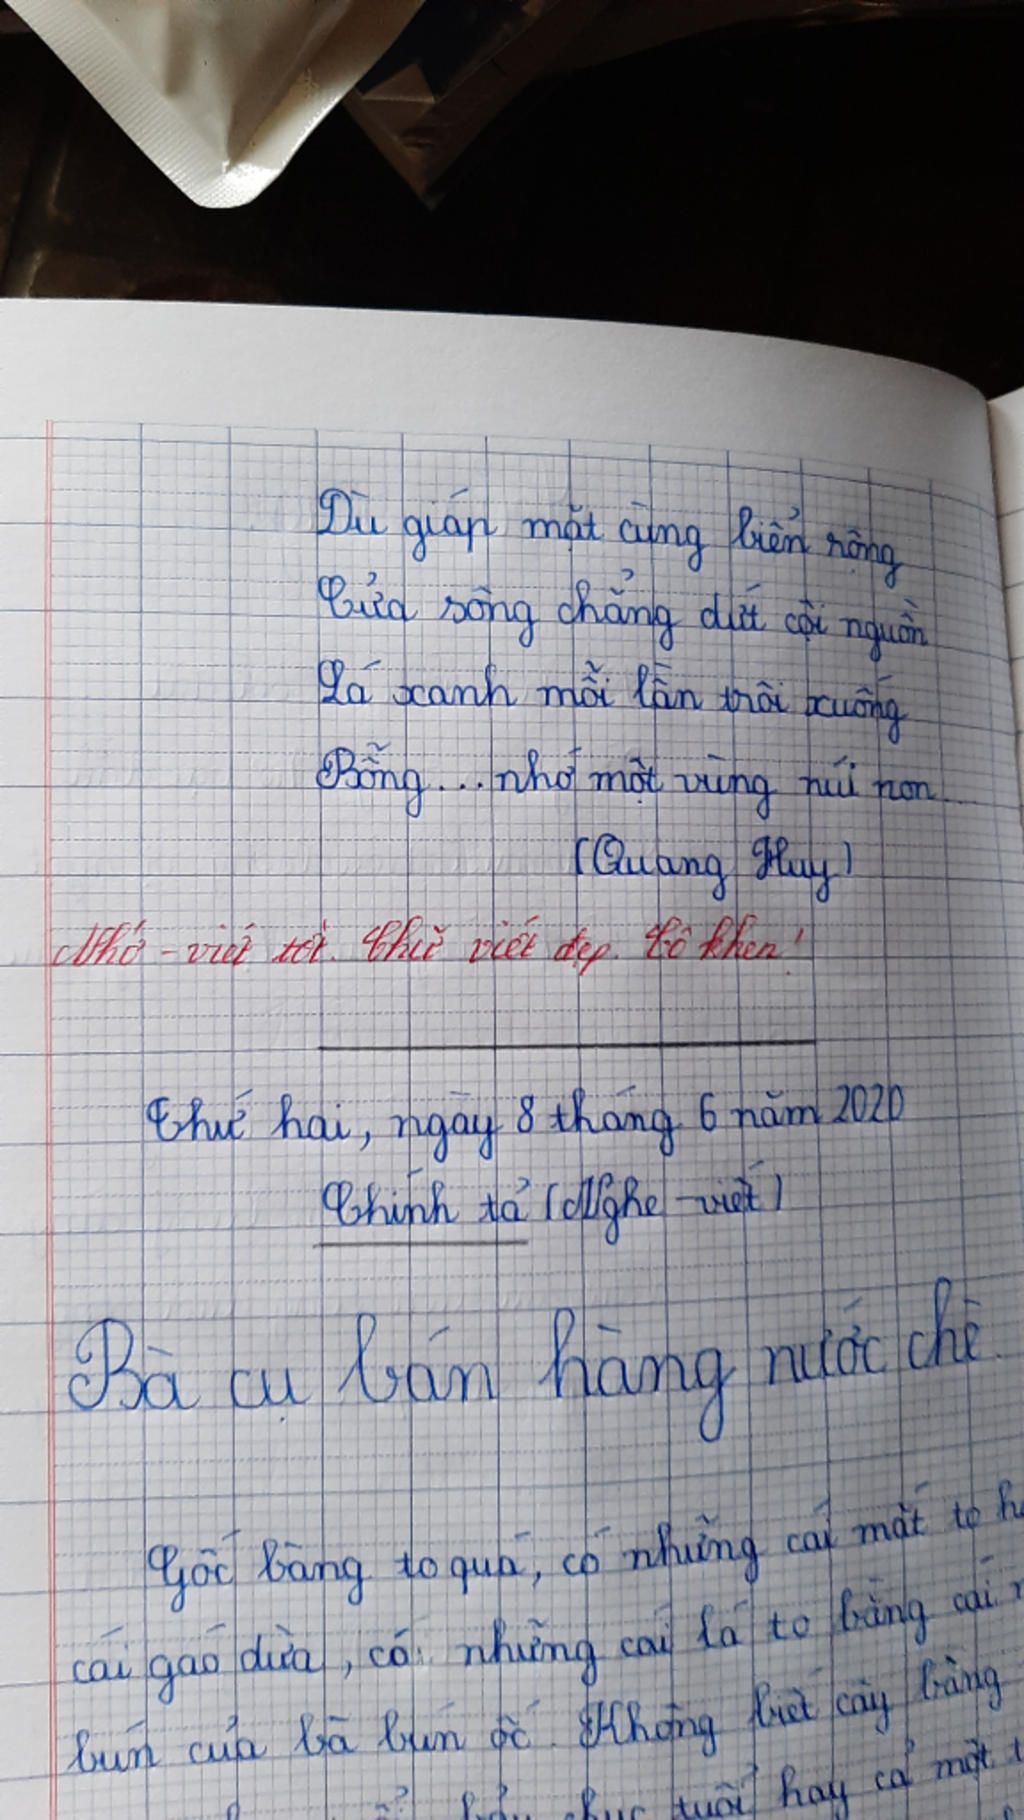 Dù giáp mặt cùng biển rộng
Cửa sông chẳng dứt cội nguồn
Lá xanh mỗi lần trôi xuống
Bỗng... nhớ một vùng núi non
(Quang Huy)
Nhớ - viết tốt. Chữ viết đẹp. Cô khen!
Thứ hai, ngày 8 tháng 6 năm 2020
Chính tả (Nghe - viết)
Bà cụ bán hàng nước chè
Gốc bàng to quá, có những cái mắt to
cái gáo dừa, có những cái lá to bằng cái
bún của bà bún ốc. Không biết cây bàng
tuổi hay cả một